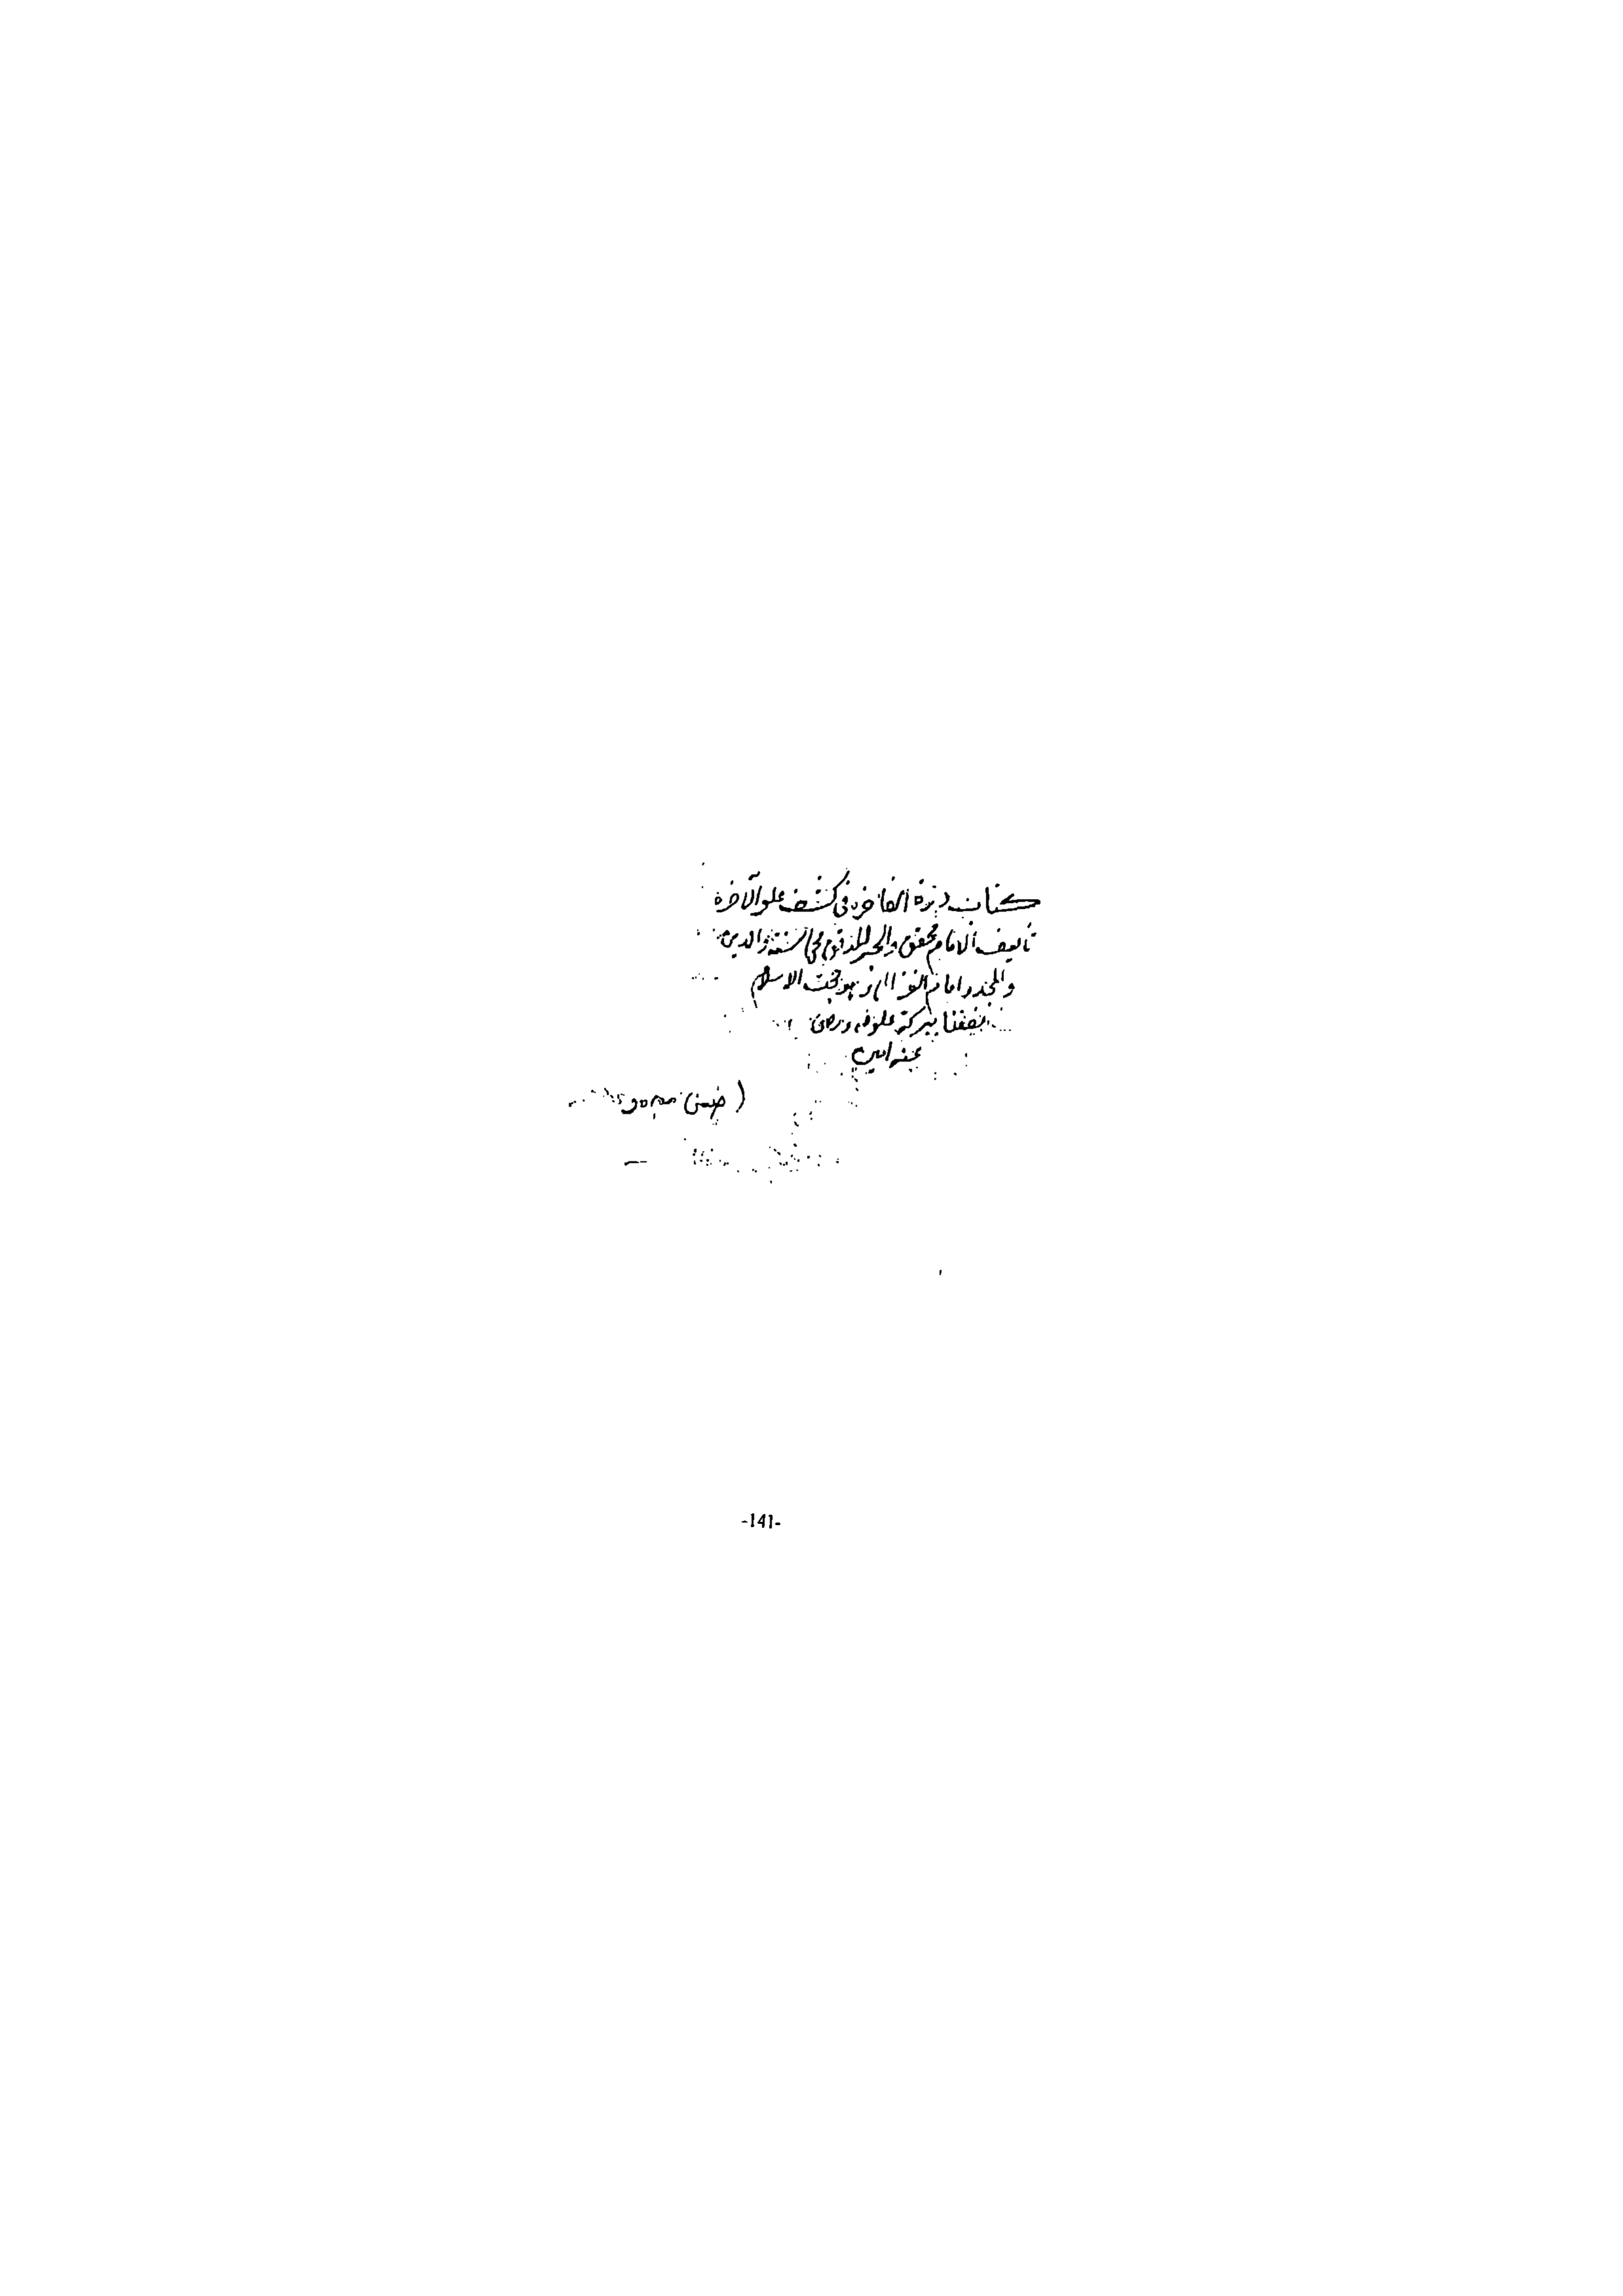 كتاب درة الفاخره فى كشف علو الآخرة
تأليف الامام محقق والحبر المدقق محي السنة والدين
والمجدد امام الغزالي زين حجت الاسلام
نفعنا ببركة علومه ورضى
عنه امين
(ضمن مجموع
-141-